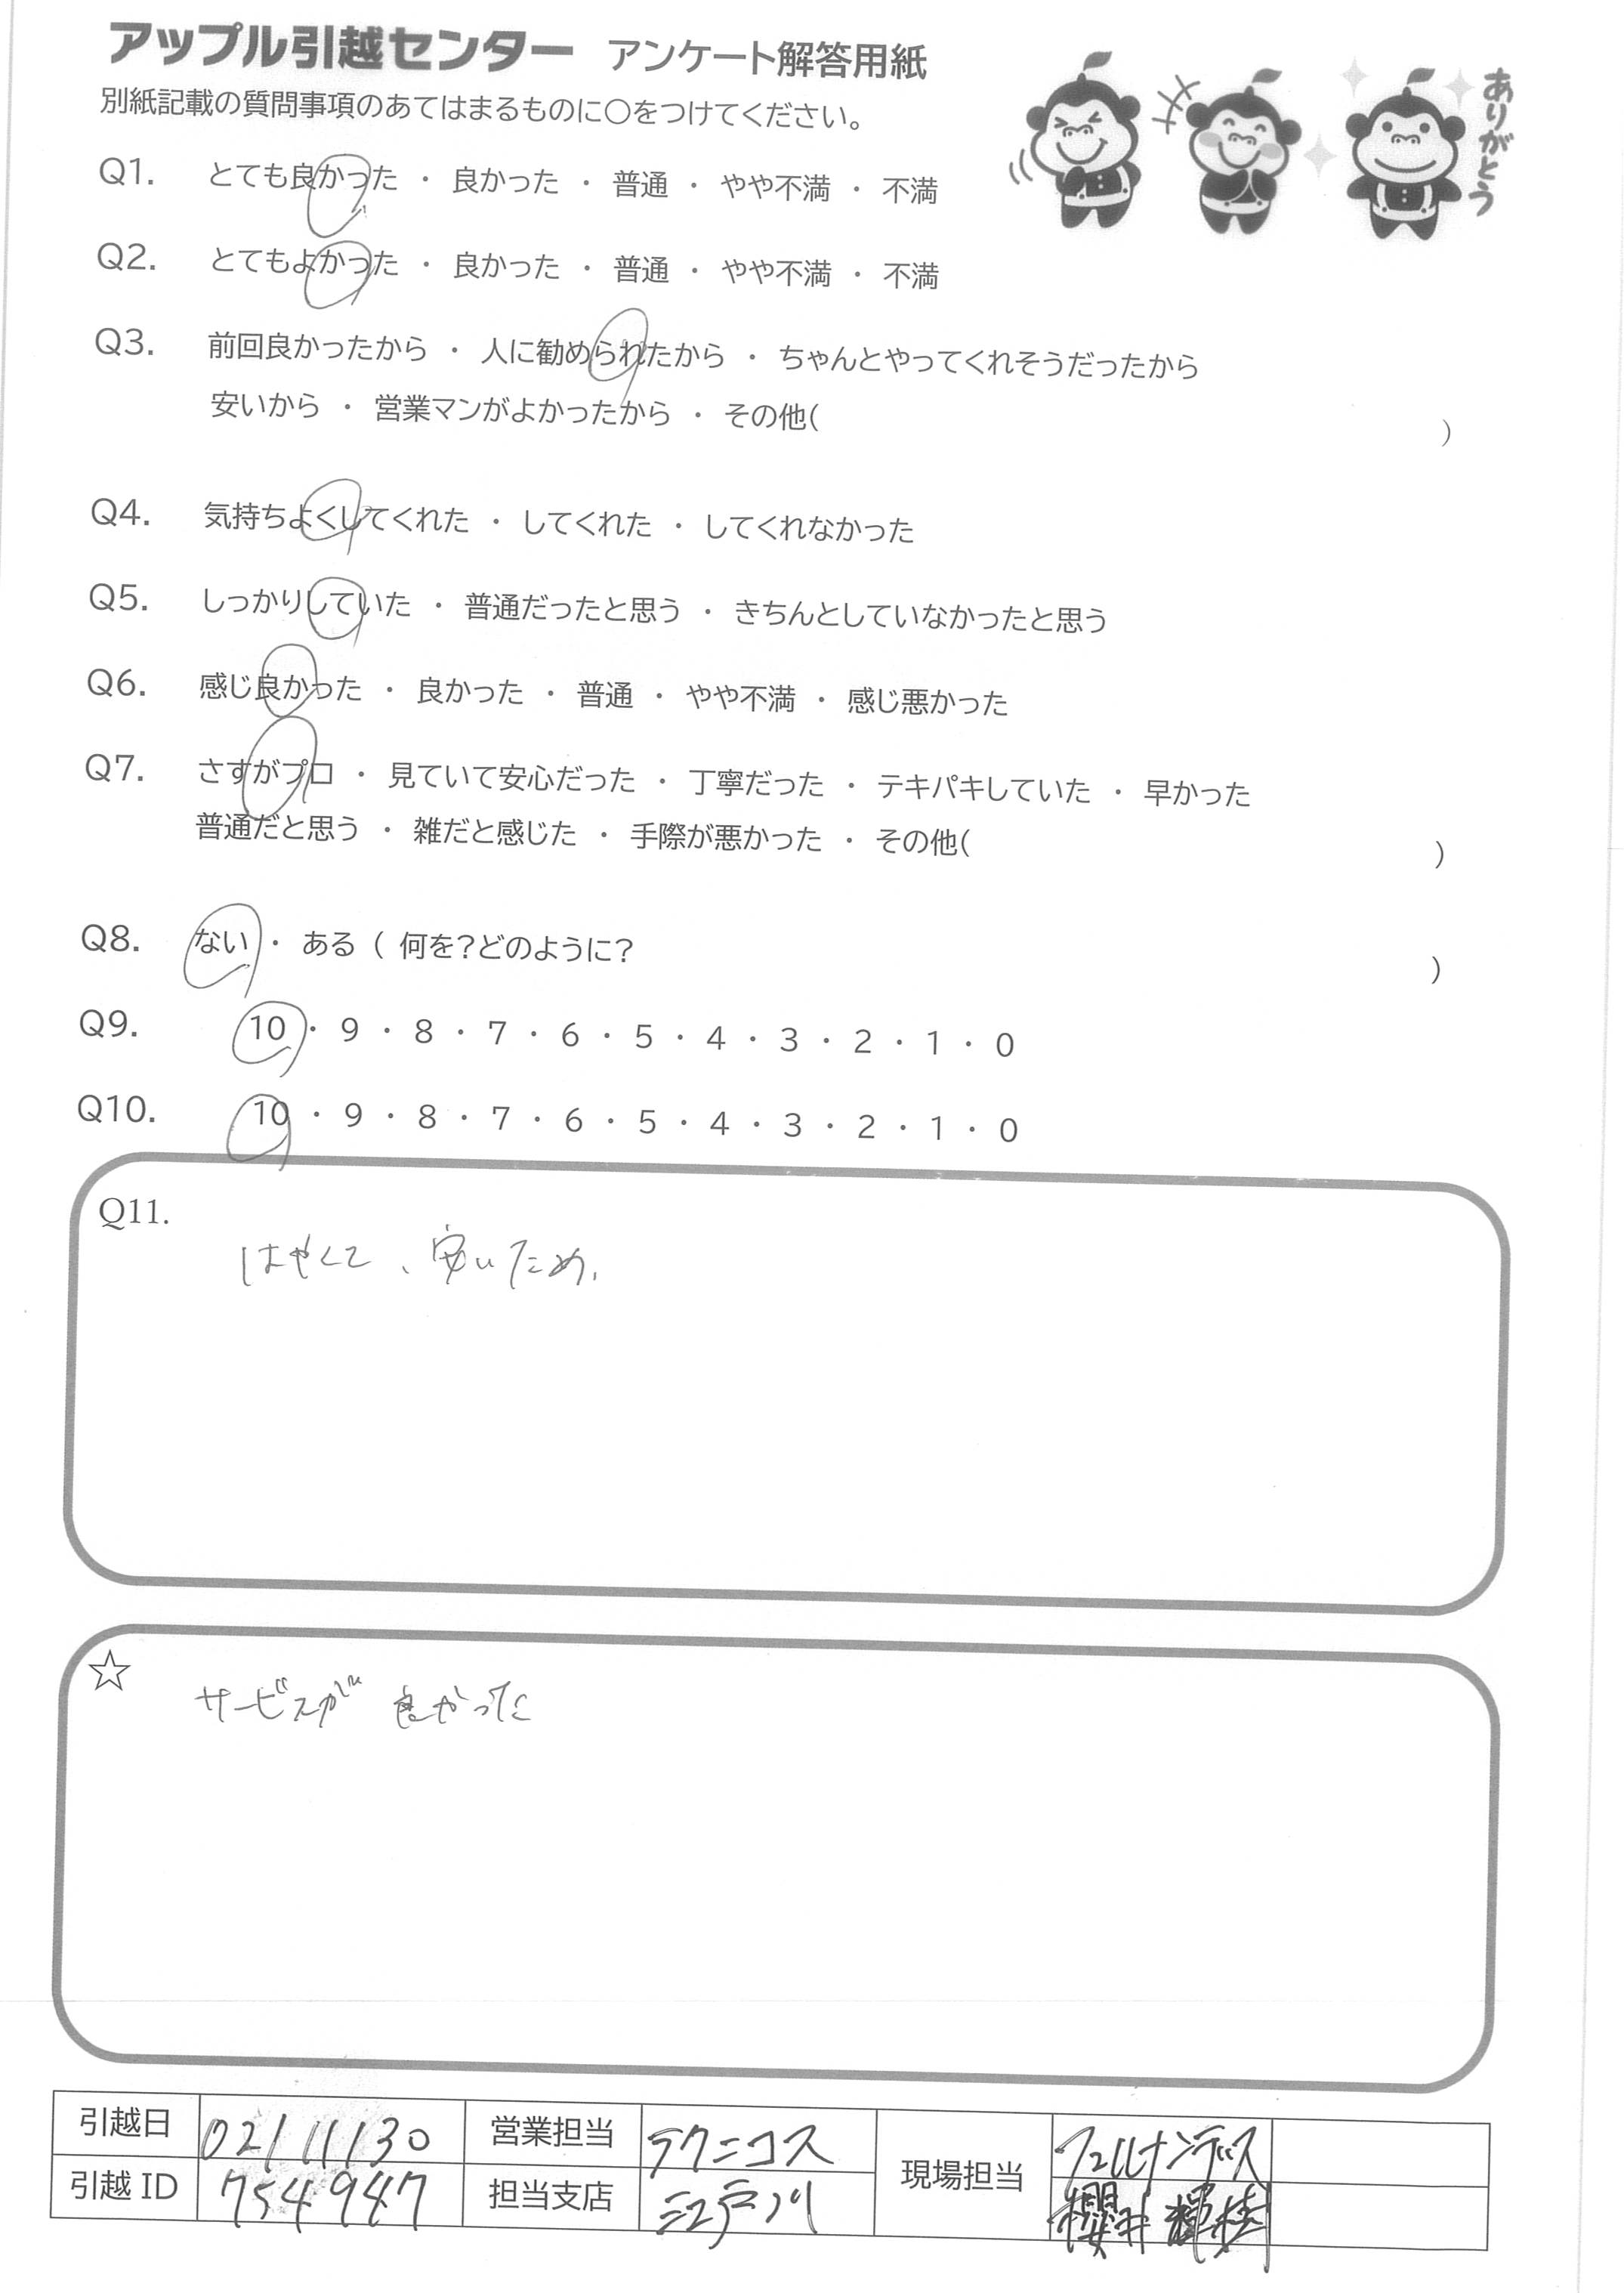 アップル引越センター アンケート解答用紙
別紙記載の質問事項のあてはまるものに○をつけてください。
ありがとう
Q1. とても良かった ・ 良かった ・ 普通 ・ やや不満 ・ 不満
Q2. とてもよかった ・ 良かった ・ 普通 ・ やや不満 ・ 不満
Q3. 前回良かったから ・ 人に勧められたから ・ ちゃんとやってくれそうだったから
安いから ・ 営業マンがよかったから ・ その他( )
Q4. 気持ちよくしてくれた ・ してくれた ・ してくれなかった
Q5. しっかりしていた ・ 普通だったと思う ・ きちんとしていなかったと思う
Q6. 感じ良かった ・ 良かった ・ 普通 ・ やや不満 ・ 感じ悪かった
Q7. さすがプロ ・ 見ていて安心だった ・ 丁寧だった ・ テキパキしていた ・ 早かった
普通だと思う ・ 雑だと感じた ・ 手際が悪かった ・ その他( )
Q8. ない ・ ある ( 何を?どのように? )
Q9. 10 ・ 9 ・ 8 ・ 7 ・ 6 ・ 5 ・ 4 ・ 3 ・ 2 ・ 1 ・ 0
Q10. 10 ・ 9 ・ 8 ・ 7 ・ 6 ・ 5 ・ 4 ・ 3 ・ 2 ・ 1 ・ 0
Q11.
はやくて、安いため.
☆
サービスが良かった
引越日 02/11/30 営業担当 テクニコス 現場担当 フェルナンデス
引越 ID 754947 担当支店 江戸川 櫻井